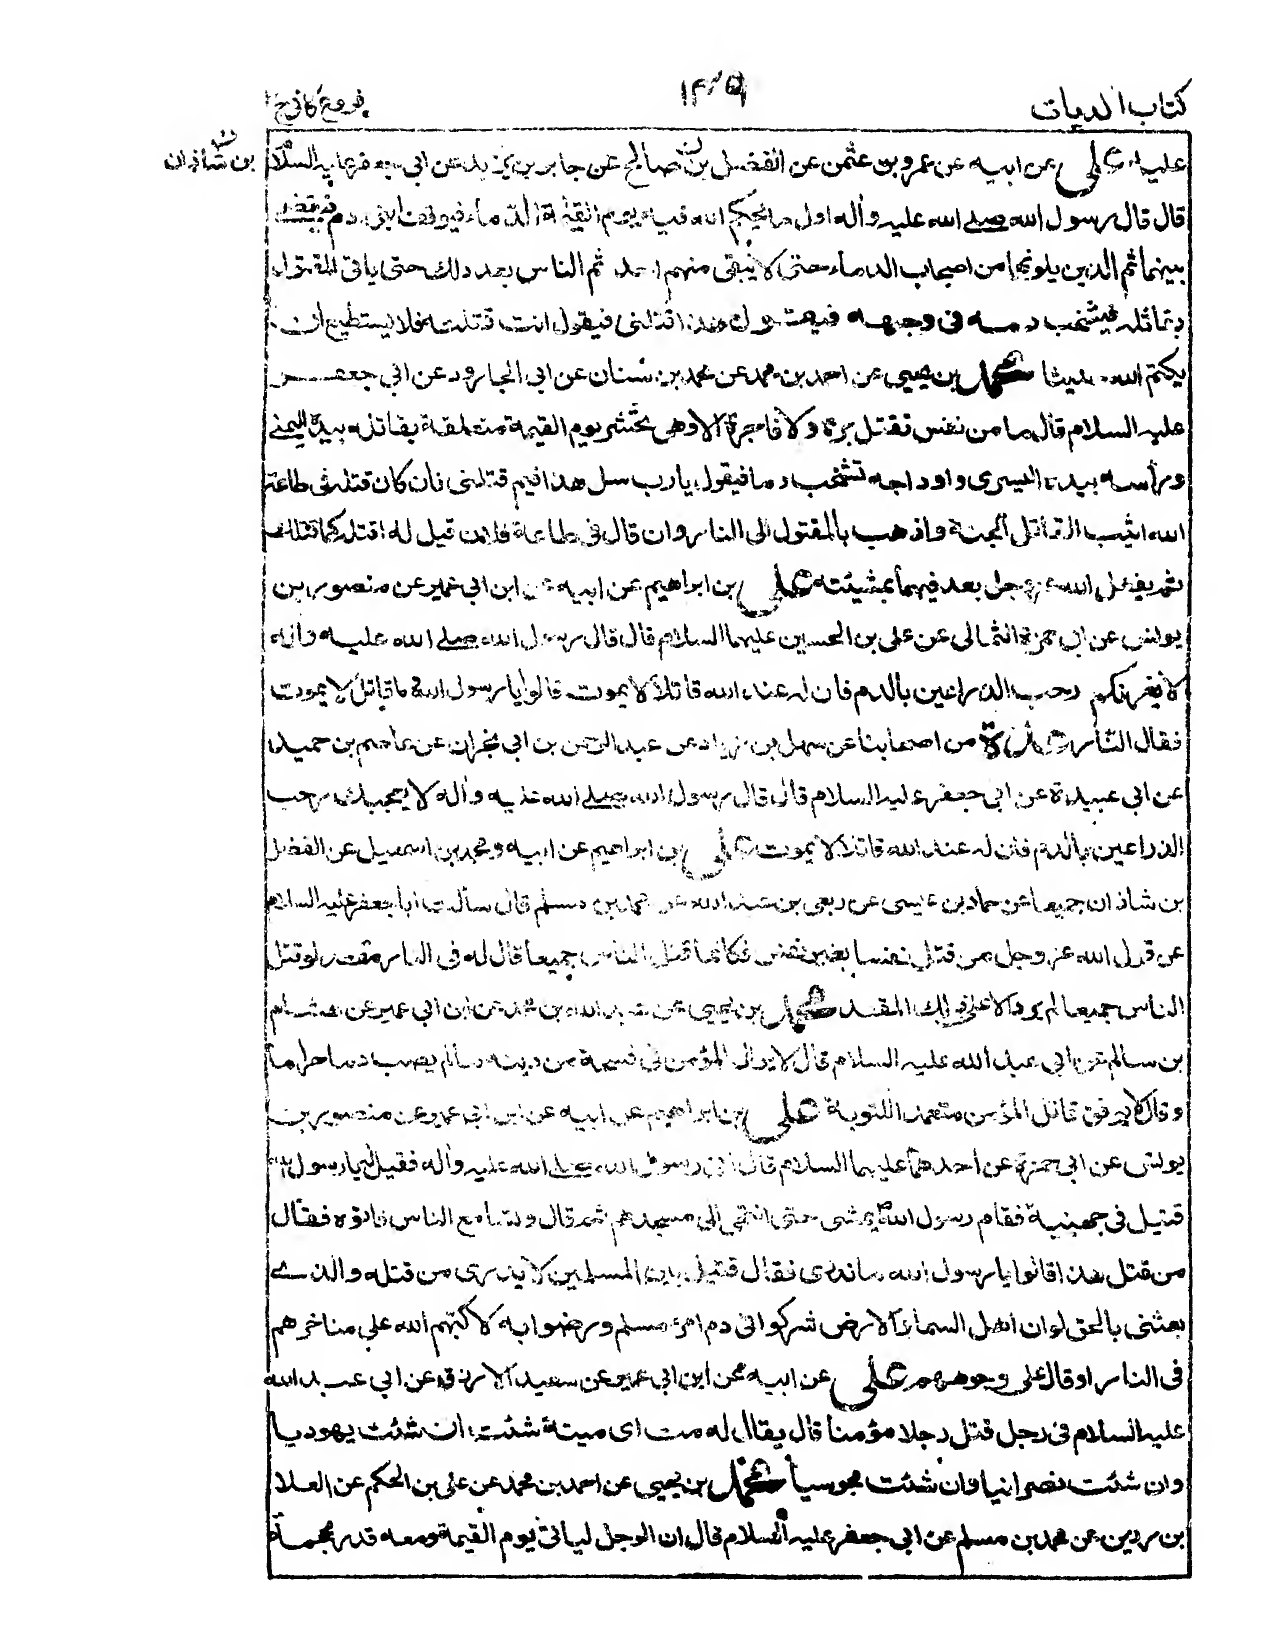 كتاب الديات
فروع كافي ج
بن شاذان
عليه علي عن ابيه عن عمرو بن عثمن عن المفضل بن صالح عن جابر بن يزيد عن ابي جعفر عليه السلام
قال قال رسول الله صلے الله عليه وأله اول ما يحكم الله فيه يوم القيمة الدماء فيوقف ابني ادم فيقضے
بينهما ثم الذين يلونهما من اصحاب الدماء حتى لا يبقى منهم احد ثم الناس بعد ذلك حتى ياتي المقتول
بقاتله فيشخب دمه في وجهه فيقول هذا قتلني فيقول انت قتلته فلا يستطيع ان
يكتم الله حديثا محمد بن يحيى عن احمد بن محمد عن محمد بن سنان عن ابي الجارود عن ابي جعفر
عليه السلام قال ما من نفس تقتل برة ولا فاجرة الا وهي تحشر يوم القيمة متعلقة بقاتله بيده اليمنى
ورأسه بيده اليسرى واوداجه تشخب دما فيقول يارب سل هذا فيم قتلني فان كان قتله في طاعة
الله اثيب القاتل الجنة واذهب بالمقتول الى النار وان قال في طاعة فلان قيل له اقتله كما قتلك
ثم يفعل الله عز وجل بعد فيهما بمشيئته علي بن ابراهيم عن ابيه عن ابن ابي عمير عن منصور بن
يونس عن ابي حمزة الثمالي عن علي بن الحسين عليهما السلام قال قال رسول الله صلے الله عليه وأله
لا يغرنكم رحب الذراعين بالدم فان له عند الله قاتلا لا يموت قالوا يا رسول الله ما قاتل لا يموت
فقال النار عدة من اصحابنا عن سهل بن زياد عن عبد الرحمن بن ابي نجران عن عاصم بن حميد
عن ابي عبيدة عن ابي جعفر عليه السلام قال قال رسول الله صلے الله عليه وأله لا يعجبك رحب
الذراعين بالدم فان له عند الله قاتلا لا يموت علي بن ابراهيم عن ابيه ومحمد بن اسمعيل عن الفضل
بن شاذان جميعا عن حماد بن عيسى عن ربعي بن عبد الله عن محمد بن مسلم قال سألت ابا جعفر عليه السلام
عن قول الله عز وجل من قتل نفسا بغير نفس فكانما قتل الناس جميعا قال له في النار مقعد لو قتل
الناس جميعا لم يرد الا على ذلك المقعد محمد بن يحيى عن عبد الله بن محمد عن ابن ابي عمير عن هشام
بن سالم عن ابي عبد الله عليه السلام قال لا يزال المؤمن في فسحة من دينه مالم يصب دما حراما
وقال لا يوفق قاتل المؤمن متعمدا للتوبة علي بن ابراهيم عن ابيه عن ابن ابي عمير عن منصور بن
يونس عن ابي حمزة عن احدهما عليهما السلام قال اتى رسول الله صلے الله عليه وأله فقيل له يا رسول الله
قتيل في جهينة فقام رسول الله يمشى حتى انتهى الى مسجدهم ثم قال وتسامع الناس فاتوه فقال
من قتل هذا قالوا يا رسول الله ما ندري فقال قتيل بين المسلمين لا يدرى من قتله والذے
بعثني بالحق لو ان اهل السماء والارض شركوا في دم امرء مسلم ورضوا به لاكبهم الله على مناخرهم
في النار او قال على وجوههم علي عن ابيه عن ابن ابي عمير عن سعيد الازرق عن ابي عبد الله
عليه السلام في رجل قتل رجلا مؤمنا قال يقال له مت اى ميتة شئت ان شئت يهوديا
وان شئت نصرانيا وان شئت مجوسيا محمد بن يحيى عن احمد بن محمد عن علي بن الحكم عن العلا
بن رزين عن محمد بن مسلم عن ابي جعفر عليه السلام قال ان الرجل لياتي يوم القيمة ومعه قدر محجمة